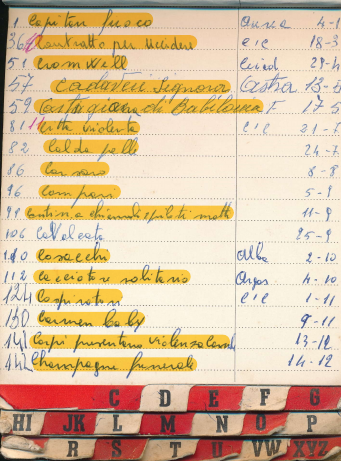 1 Capitan fuoco 4-1
36 Contratto per uccidere CIC 18-3
51 Cromwell 29-4
57 Cadaveri Signora Astra 13-5
59 Cortigiana di Babilonia F 17-5
81 Città violenta CIC 21-7
82 Calda pelle 24-7
86 Corsaro 8-8
96 Compari 5-9
97 11-9
106 Cavalcata 25-9
110 Cosacchi Alba 2-10
112 Cacciatore solitario Argos 4-10
124 Cospiratori CIC 1-11
130 Carmen Baby 9-11
141 Corpi presentano violenza 13-12
142 Champagne funerali 14-12
C D E F G
HI JK L M N O P
R S T U VW XYZ